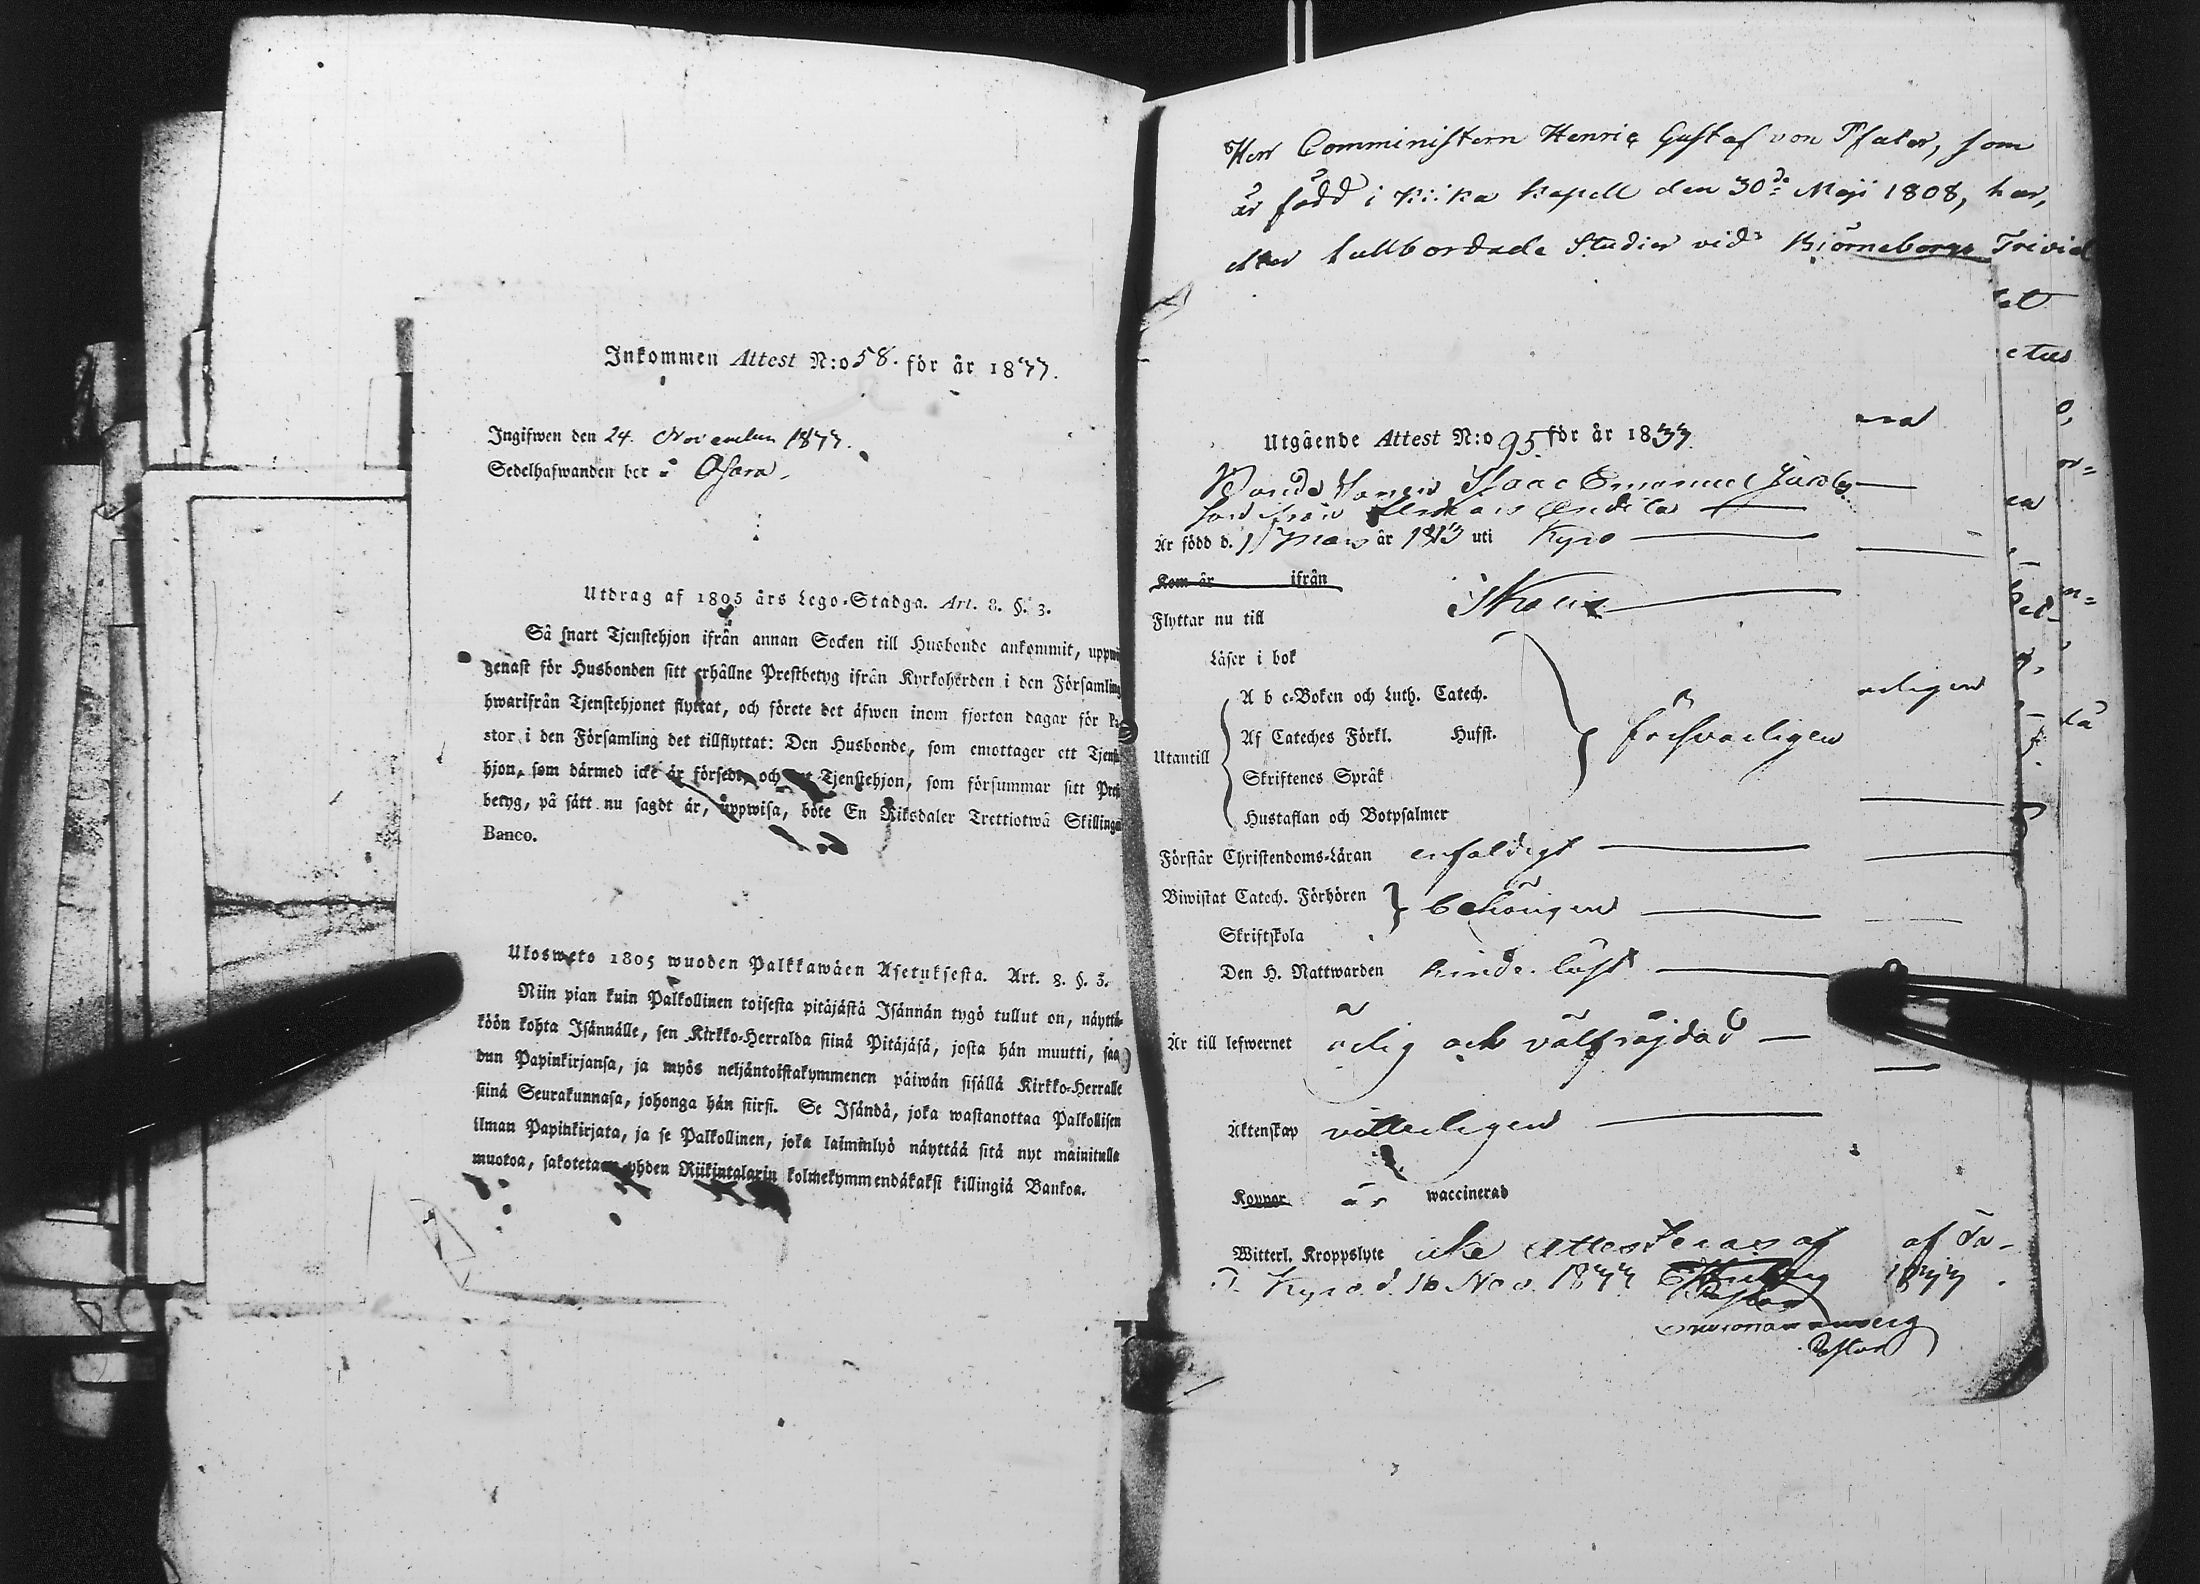 Inkommen Attest N:o 58. för år 1833.
Ingifwen den 24. November 1833.
Sedelhafwanden bor å Osara.
Utdrag af 1805 års Lego-Stadga. Art. 8. §. 3.
Så snart Tjenstehjon ifrån annan Socken till Husbonde ankommit, uppwi
genast för Husbonden sitt erhållne Prestbetyg ifrån Kyrkoherden i den Församling
hwarifrån Tjenstehjonet flyttat, och förete det äfwen inom fjorton dagar för Pa
stor i den Församling det tillflyttat: Den Husbonde, som emottager ett Tjenste
hjon, som därmed icke är försedt, och Tjenstehjon, som försummar sitt Prest
betyg, på sätt nu sagdt är, uppwisa, böte En Riksdaler Trettiotwå Skillingar
Banco.
Ulosweto 1805 wuoden Palkkawäen Asetuksesta. Art. 8. §. 3.
Niin pian kuin Palkollinen toisesta pitäjästä Isännän tygö tullut on, näyttä-
köön kohta Isännälle, sen Kirkko-Herralda siinä Pitäjäsä, josta hän muutti, saa
dun Papinkirjansa, ja myös neljäntoistakymmenen päiwän sisällä Kirkko-Herralle
siinä Seurakunnasa, johonga hän siirsi. Se Isändä, joka wastanottaa Palkollisen
ilman Papinkirjata, ja se Palkollinen, joka laiminlyö näyttää sitä nyt mainitulla
muokoa, sakotetaan yhden Riikintalarin kolmekymmendäkaksi killingiä Bankoa.
Herr Comministern Henric Gustaf von Pfaler, som
är född i Kiika Kapell den 30de Maji 1808, har,
efter fullbordade Studier vid Björneborgs Trivial
Utgående Attest N:o 95 för år 1833
Bonde Sonen Isaac Emanuel Jacobs
son från
Är född d. Mars år 1813 uti Kyro
Kom år ifrån
Flyttar nu till Ikalis
Läser i bok
A b c-Boken och Luth. Catech.
Af Cateches Förkl. Husst.
Utantill försvarligen
Skriftenes Språk
Hustaflan och Botpsalmer
Förstår Christendoms-Läran enfaldigt
Biwistat Catech. Förhören behörigen
Skriftskola
Den H. Nattwarden hinderlöst
Är till lefwernet ärlig och välfräjdad
Äktenskap vitterligen
Koppor är waccinerad
Witterl. Kroppslyte icke Attesteras af
Kyro d. 16 Nov. 1833
Pastor